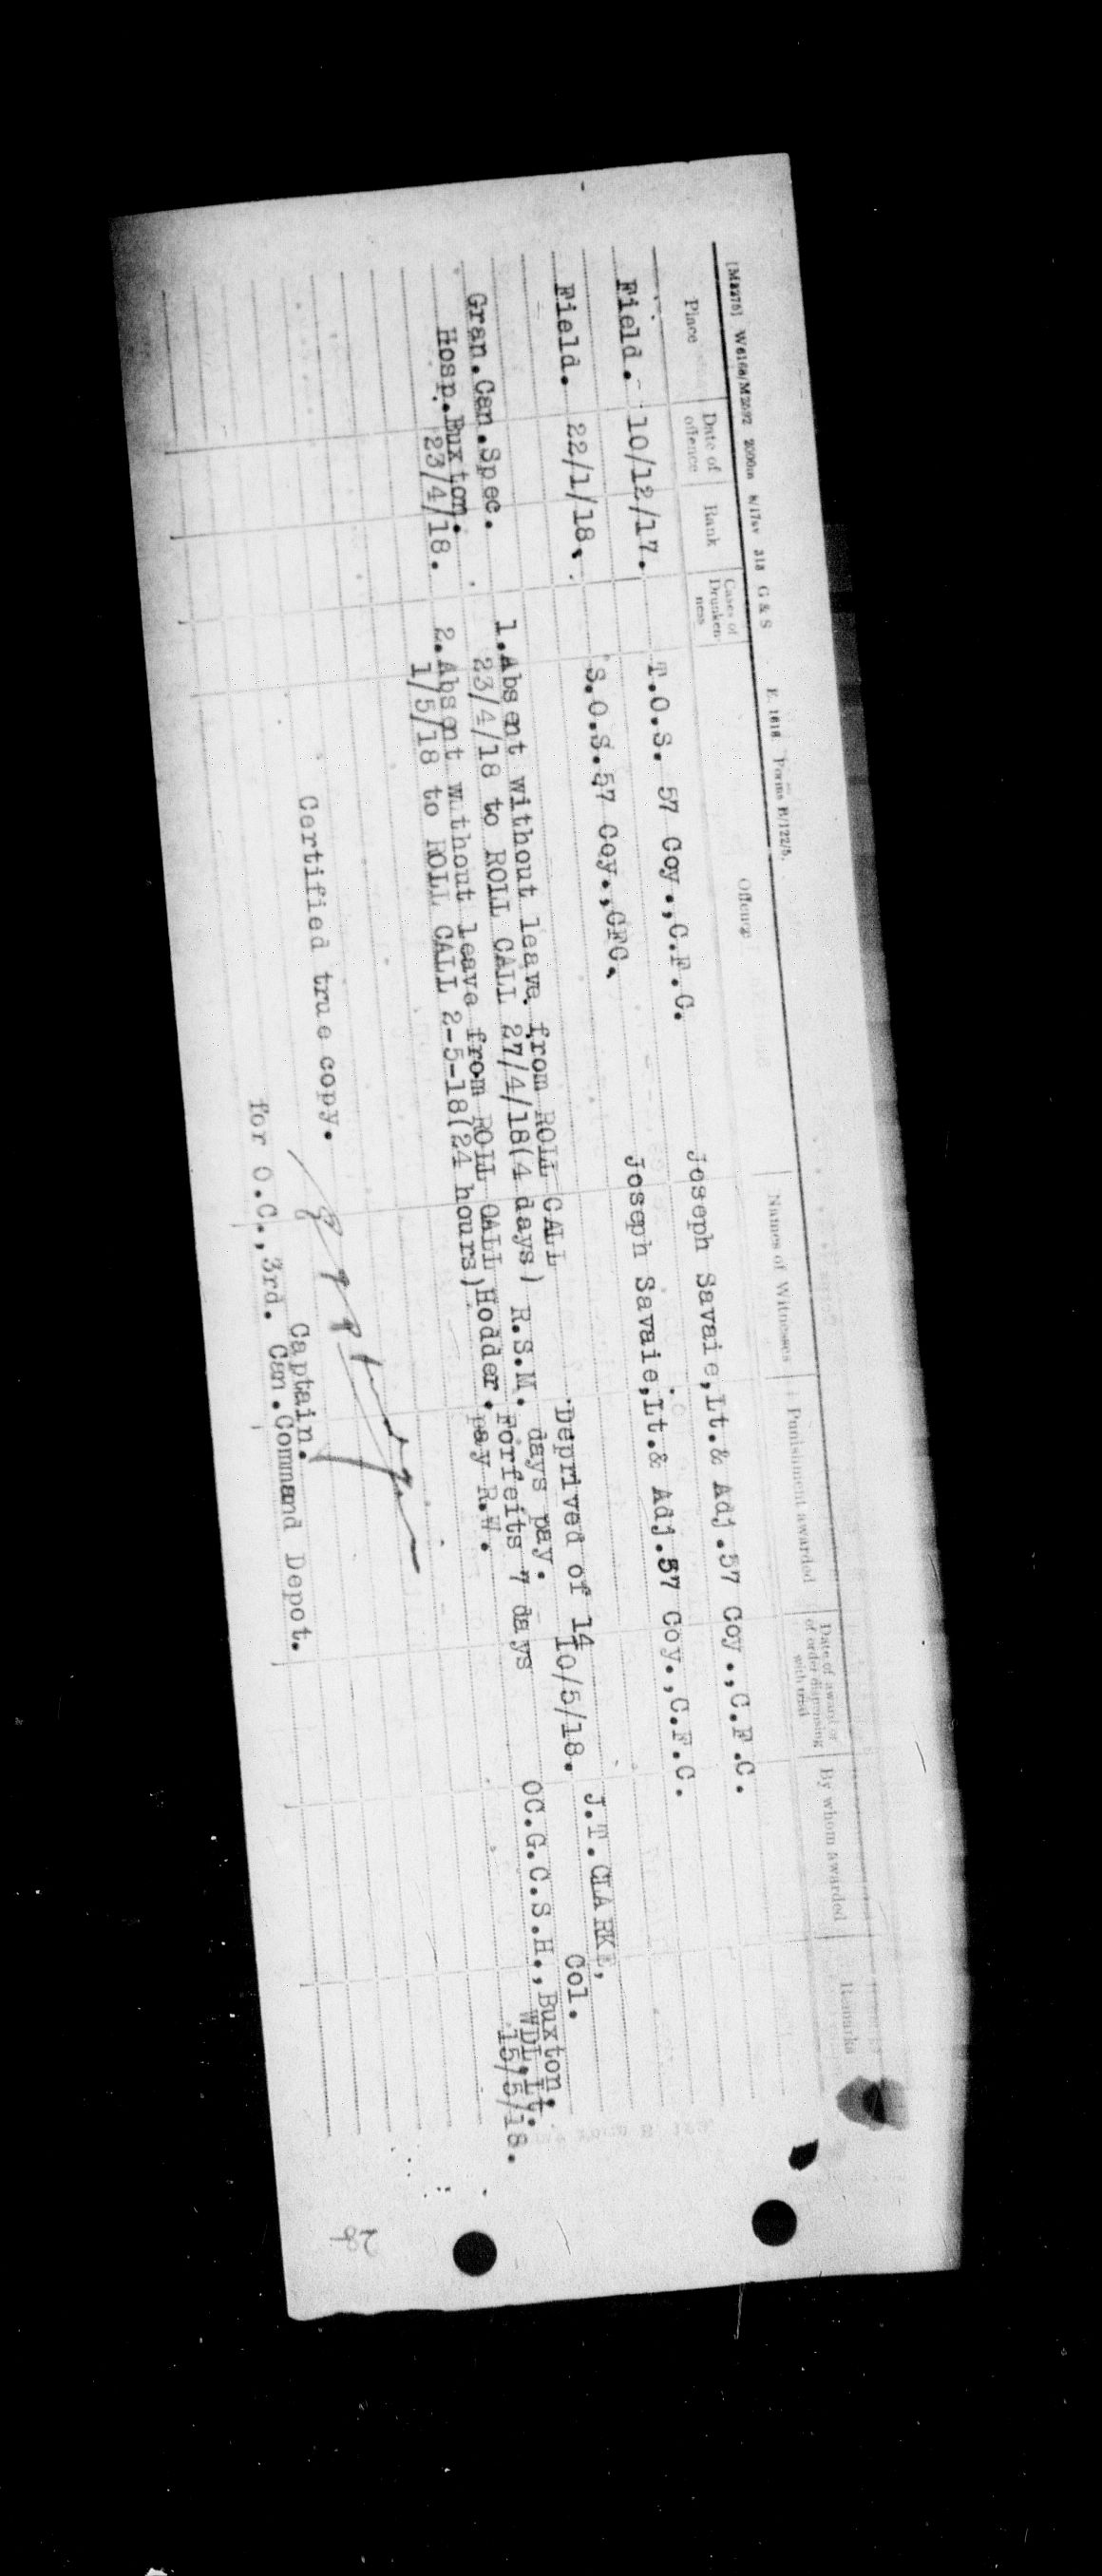 [M3275] W6168/M2592 2000m 8/17sv 313 G & S E. 1616. Forms B/122/5.
Place Date of offence Rank Cases of Drunkenness Offence Names of Witnesses Punishment awarded Date of award or of order dispensing with trial By whom awarded Remarks
Field. 10/12/17. T.O.S. 57 Coy.,C.F.C. Joseph Savaie,Lt.& Adj.57 Coy.,C.F.C.
Field. 22/1/18. S.O.S.57 Coy.,CFC. Joseph Savaie,Lt.& Adj.57 Coy.,C.F.C.
J.T.CLARKE,
Col.
Gran.Can.Spec. 1.Absent without leave from ROLL CALL Deprived of 14 10/5/18. OC.G.C.S.H.,Buxton.
Hosp.Buxton. 23/4/18 to ROLL CALL 27/4/18(4 days) R.S.M. days pay. WDL,Lt.
23/4/18. 2.Absent without leave from ROLL CALL Hodder. Forfeits 7 days 15/5/18.
1/5/18 to ROLL CALL 2-5-18(24 hours) pay R.W.
Certified true copy.
Captain.
for O.C.,3rd. Can.Command Depot.
28